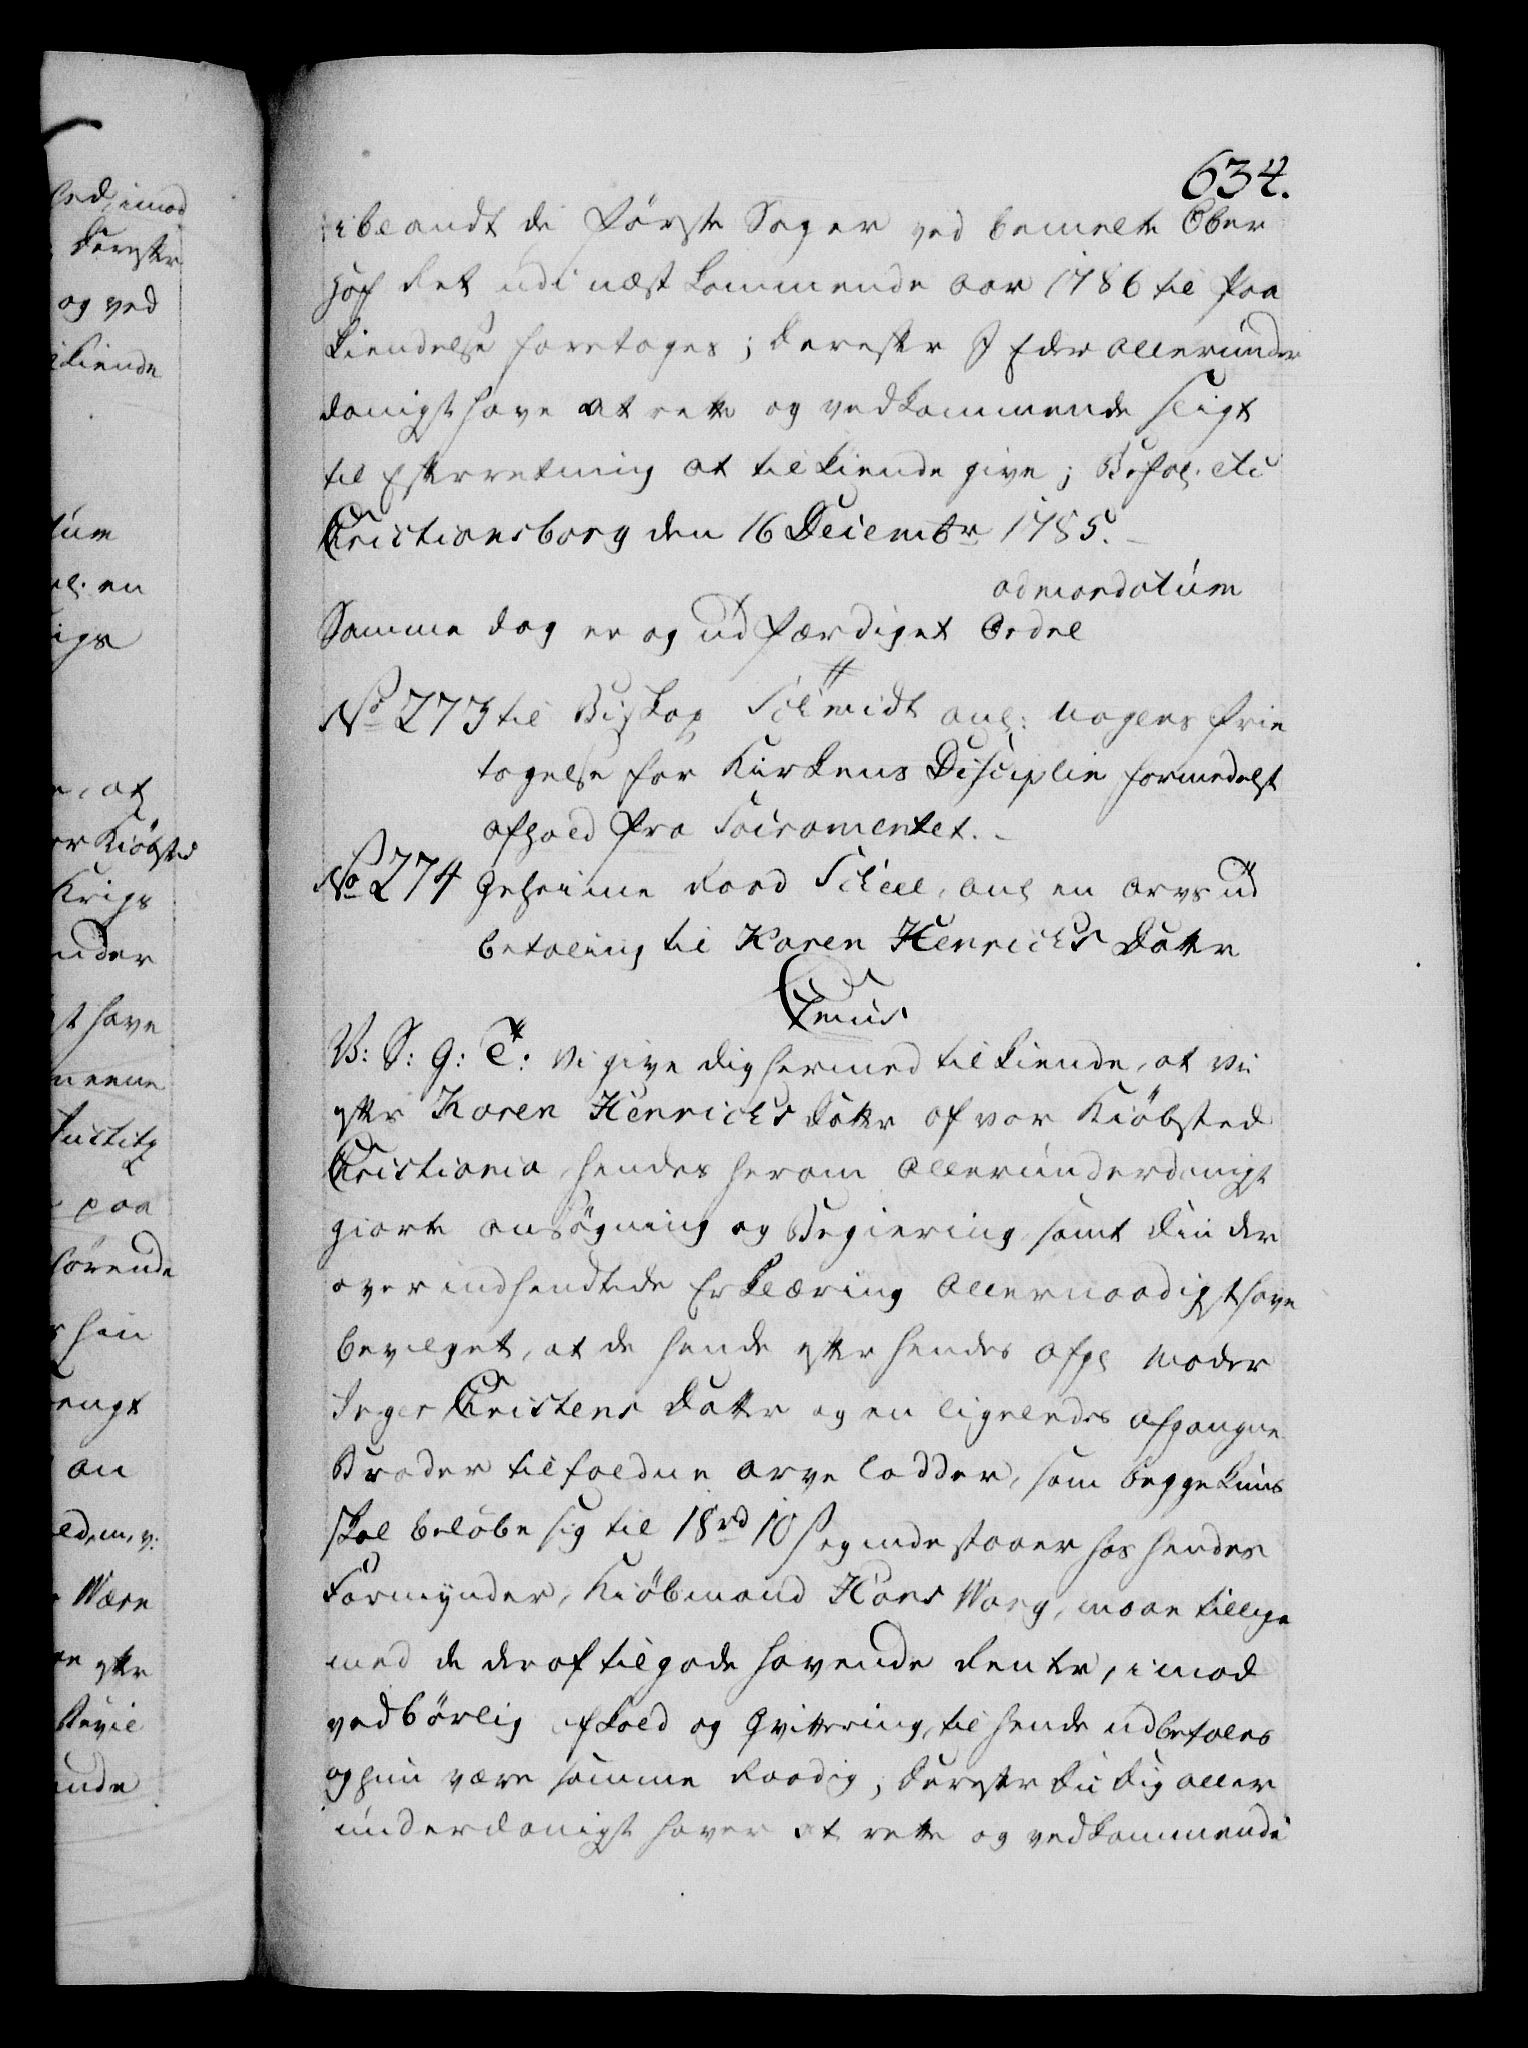 634.
iblandt de første Sager ved bemelte Ober
Hof Ret udi næst kommende Aar 1786 til Paa
kiendelse foretages; derefter I Eder allerunder
danigst have at rette og vedkommende sligt
til Efterretning at tilkiende give; Befal. etc
Christiansborg den 16 Decembr 1785.
ad mandatum
Samme dag er og udfærdiget Ordre
No 273 til Biskop Schmidt anl: Nogens frie
tagelse for Kirkens Disciplin formedelst
afhold fra Sacramentet.
No 274 Geheime Raad Scheel, anl en arvs ud
betaling til Karen Henrichs Datter
C 7mus
V: S: G: T: Vi give dig hermed tilkiende, at Vi
efter Karen Henrichs Datter af vor Kiøbsted
Christiania, hendes herom allerunderdanigst
giorte ansøgning og Begiering samt din der
over indsendtede Erklæring allernaadigst have
bevilget, at de hende efter hendes afgl Moder
Inger Christens Datter og en ligeledes afgangne
Broder tilfaldne arve lodder, som begge kuns
skal beløbe sig til 18 rd 10 s og indestaaer hos hendes
Formynder, Kiøbmand Hans Wang, maae tillige
med de deraf tilgode havende Renter, imod
vedbørlig afkald og Qvittering, til hende udbetales
og hun være samme Raadig; derefter du dig aller
underdanigst haver at rette og vedkommende